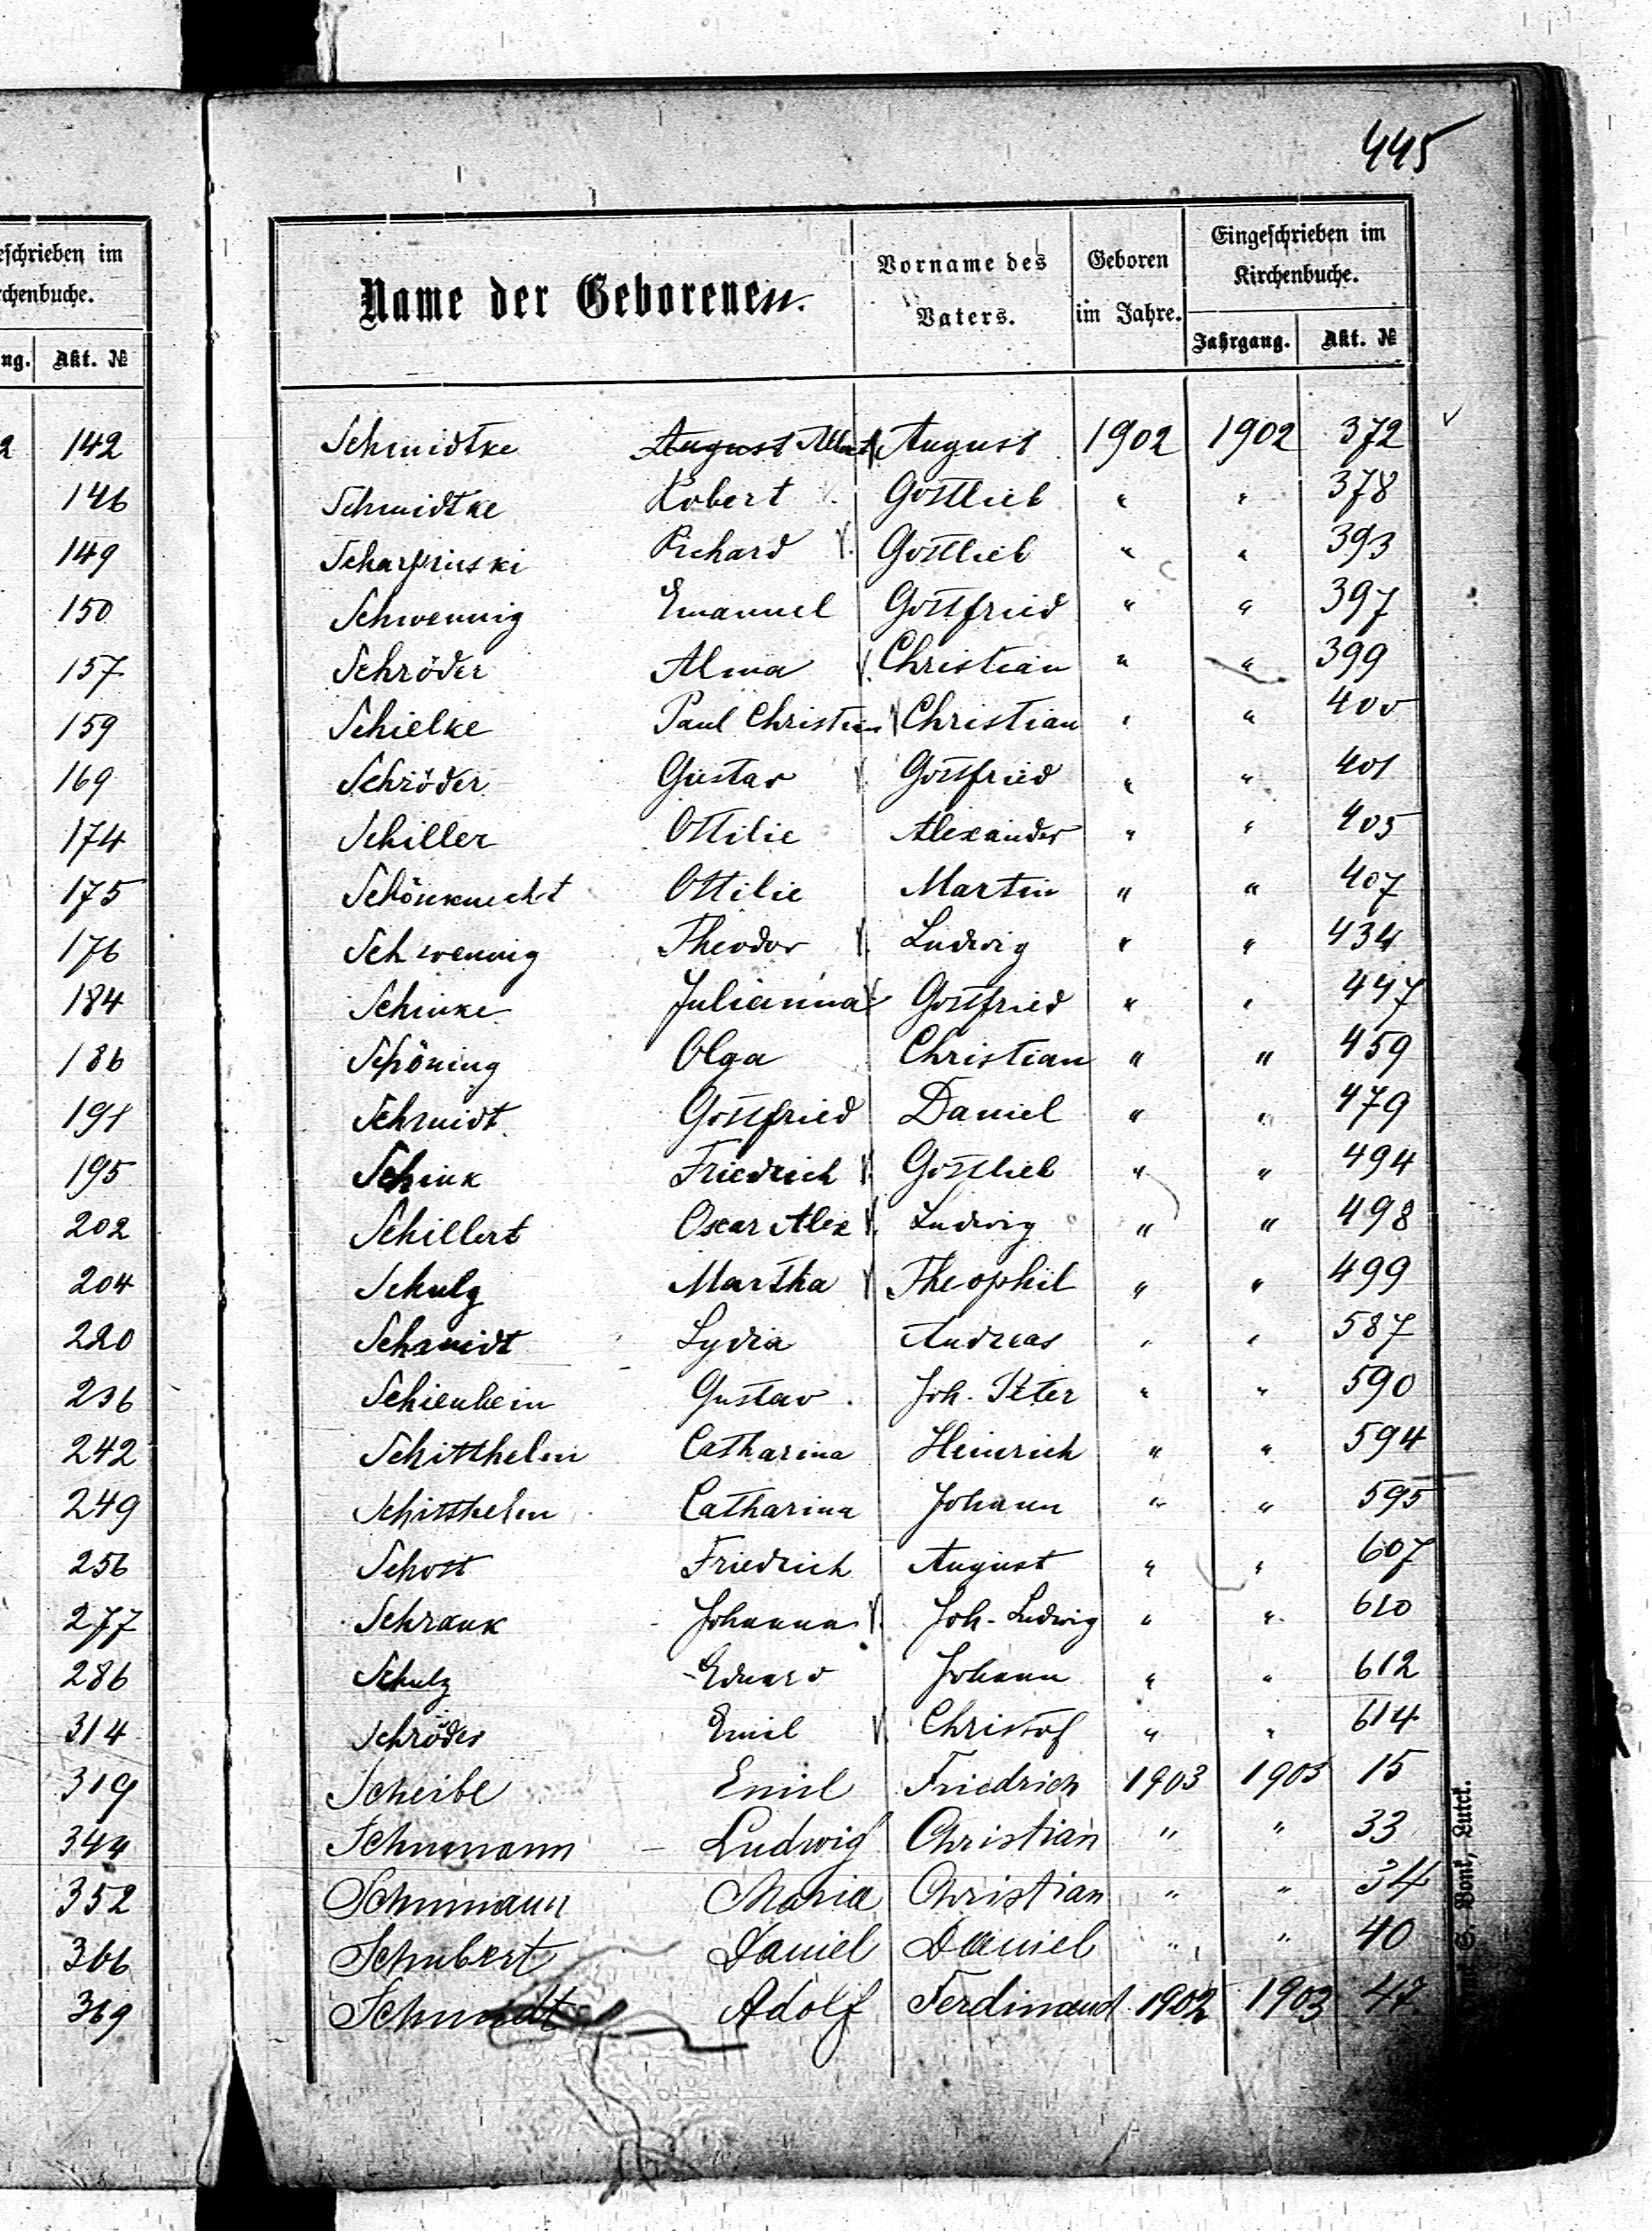 445
eschrieben im
rchenbuche.
ng. Akt. №
2 142
146
149
150
157
159
169
174
175
176
184
186
191
195
202
204
220
236
242
249
256
277
286
314
319
344
352
366
369
Name der Geborenen. Vorname des Vaters. Geboren im Jahre. Eingeschrieben im Kirchenbuche.
Jahrgang. Akt. №
Schmidtke August Albert August 1902 1902 372
Schmidtke Robert Gottlieb " " 378
Scharpinski Richard Gottlieb " " 393
Schwennig Emanuel Gottfried " " 397
Schröder Alma Christian " " 399
Schielke Paul Christian Christian " " 400
Schröder Gustav Gottfried " " 401
Schiller Ottilie Alexander " " 405
Schönknecht Ottilie Martin " " 407
Schwennig Theodor Ludwig " " 434
Schinke Julianna Gottfried " " 447
Schöning Olga Christian " " 459
Schmidt Gottfried Daniel " " 479
Schink Friedrich Gottlieb " " 494
Schillert Oscar Alex Ludwig " " 498
Schulz Martha Theophil " " 499
Schmidt Lydia Andreas " " 587
Schienbein Gustav Joh. Peter " " 590
Schitthelm Catharina Heinrich " " 594
Schitthelm Catharina Johann " " 595
Schott Friedrich August " " 607
Schrank Johanna Joh. Ludwig " " 610
Schulz Eduard Johann " " 612
Schröder Emil Christof " " 614
Scheibe Emil Friedrich 1903 1903 15
Schumann Ludwig Christian " " 33
Schumann Maria Christian " " 34
Schubert Daniel Daniel " " 40
Schmidt Adolf Ferdinand 1902 1903 47
Bonk, Lutck.